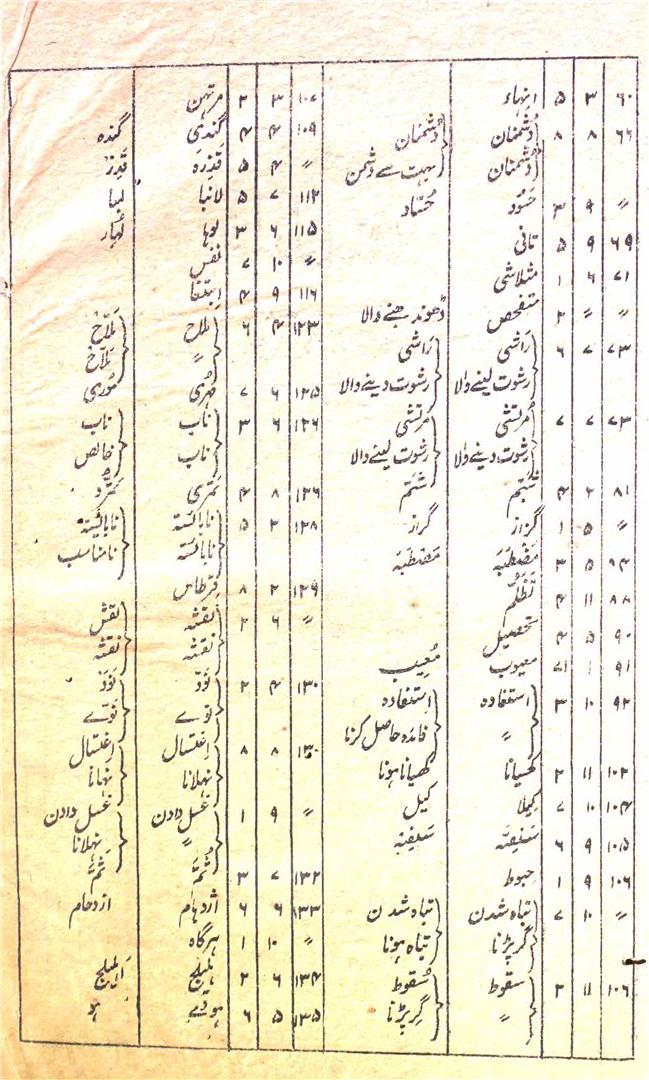 ۶۰ ۳ ۵ انہاء
۶۶ ۸ ۸ دشمنان دُشمنان
دُشمنان بہت سے دشمن
〃 ۹ ۳ حَسُود حُسّاد
۶۹ ۹ ۵ تانی
۷۱ ۶ ۱ متلاشی
〃 〃 ۲ متفحص ڈھونڈھنے والا
۷۳ ۷ ۶ رَاشی رَاشی
رشوت لینے والا رشوت دینے والا
۷۳ ۷ ۷ مُرتشی مرتشی
رشوت دینے والا رشوت لینے والا
۸۱ ۲ ۴ شتم شتم
〃 ۵ ۱ گزاز گراز
۸۴ ۵ ۳
۸۸ ۱۱ ۴ تظلّم
۹۰ ۵ ۴ تحصیل
۹۱ ۱ معیوب مُعِیب
۹۲ ۱۰ ۳ استفادہ استفادہ
〃 فائدہ حاصل کرنا
۱۰۲ ۱۱ ۲ کھسیانا کھسیانا ہونا
۱۰۴ ۱۰ ۷ کیلا کیل
۱۰۵ ۹ ۶ سفینہ
۱۰۶ ۹ ۱ حبوط
〃 ۱۰ ۷ تباہ شدن تباہ شدن
گر پڑنا تباہ ہونا
۱۰۶ ۱۱ ۲ سقوط سُقوط
〃 گِر پڑنا
۱۰۷ ۳ ۲ مرتہن
۱۰۹ ۴ ۴ گندی گندہ
〃 ۴ ۵ قذرہ قذِر
۱۱۲ ۷ ۵ لانبا لمبا
۱۱۵ ۶ ۳ لوہا لُہار
〃 ۱۰ ۷ نفس
۱۱۶ ۹ ۴ ابتغا
۱۲۳ ۴ ۶ ملاح مَلّاح
〃 مَلّاح
۱۲۵ ۶ ۷ مُہری مُوری
۱۲۶ ۶ ۳ ناب ناب
ناب خالص
۱۲۶ ۸ ۴
۱۲۸ ۲ ۵ نابائستہ نابائستہ
نابائستہ نامناسب
۱۲۹ ۲ ۸ قرطاس
〃 ۶ ۲ نقشہ نقش
نقشہ نقشہ
۱۳۰ ۴ ۲ نَوَد نَوَد
نوے نوے
۱۳۰ ۸ ۸ اغتسال اغتسال
نہلانا نہانا
〃 ۹ ۱ غسل دادن غسل دادن
〃 نہلانا
۱۳۲ ۷ ۳ ثُمَّ ثَمَّ
۱۳۳ ۶ ۶ اژدہام ازدحام
〃 ۱۰ ۱ ہرگاہ
۱۳۴ ۶ ۲ ہلیلج
۱۳۵ ۵ ۶ ہووے ہو